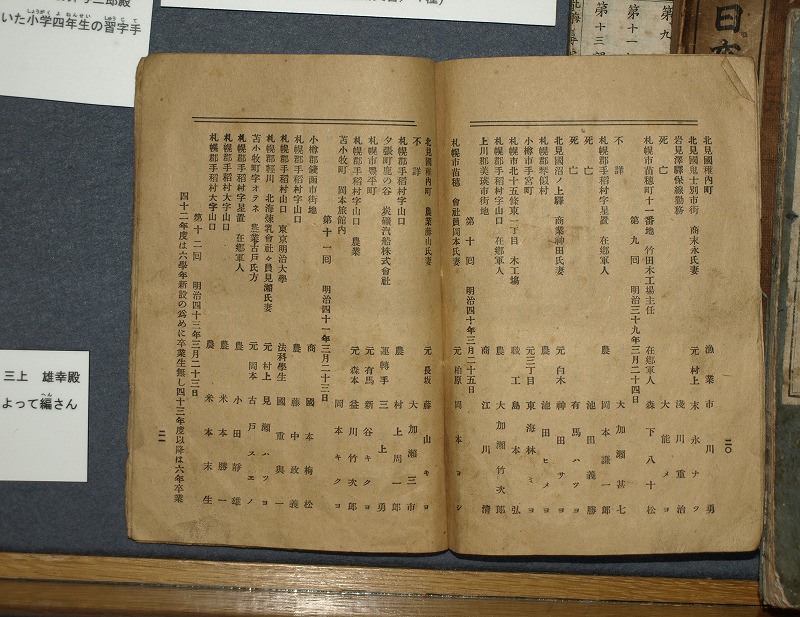 いた小学四年生の習字手
三上　雄幸殿
よって編さん
第九
第十一
第十三
二〇
北見國稚内町　漁業　市川勇
北見國鬼士別市街　商末永氏妻　元村上　末永ナツ
岩見澤驛保線勤務　淺川重治
死亡　大能メヨ
札幌市苗穂町十一番地　竹田木工場主任　在郷軍人　森下八十松
第九回　明治三十九年三月二十四日
不詳　大加瀬甚七
札幌郡手稻村字星置　在郷軍人　農　岡本謙一郎
死亡　池田義勝
死亡　有馬ハツヨ
北見國沼ノ上驛　商業神田氏妻　元白木　神田サヨ
札幌郡琴似村　農　池田ヒメヨ
小樽市手宮町　元三丁目　東海林ミヨ
札幌市北十五條東一丁目　木工場　職工　島本弘
札幌郡手稻村字山口　農　大加瀬竹次郎
上川郡美瑛市街地　商　江川清
第十回　明治四十年三月二十五日
札幌市苗穂　會社員岡本氏妻　元柏原　岡本ヨシ
北見國稚内町　農業藤山氏妻　元長坂　藤山キヨ
不詳　大加瀬三市
札幌郡手稻村字山口　農　村上周一郎
夕張町鹿の谷　炭礦汽船株式會社　運轉手　三上勇
札幌市豊平町　元有馬　新谷キクヨ
札幌郡手稻村字山口　農業　元森本　益川竹次郎
苫小牧町　岡本旅館内　岡本キクヨ
第十一回　明治四十一年三月二十三日
小樽郡錢函市街地　商　國本梅松
札幌郡手稻村字山口　農　藤中政義
札幌郡手稻村山口　東京明治大學　法科學生　國重與一
札幌郡輕川　北海煉乳會社々員見瀬氏妻　元村上　見瀬ハツヨ
苫小牧町字オラネ　農業古戸氏方　元岡本　古戸スエノ
札幌郡手稻村字星置　在郷軍人　農　小田靜雄
札幌郡手稻村大字山口　農　米本勝一
札幌郡手稻村大字山口　農　米本末生
第十二回　明治四十三年三月二十三日
四十二年度は六學年新設の爲めに卒業生無し四十三年度以降は六年卒業
二一